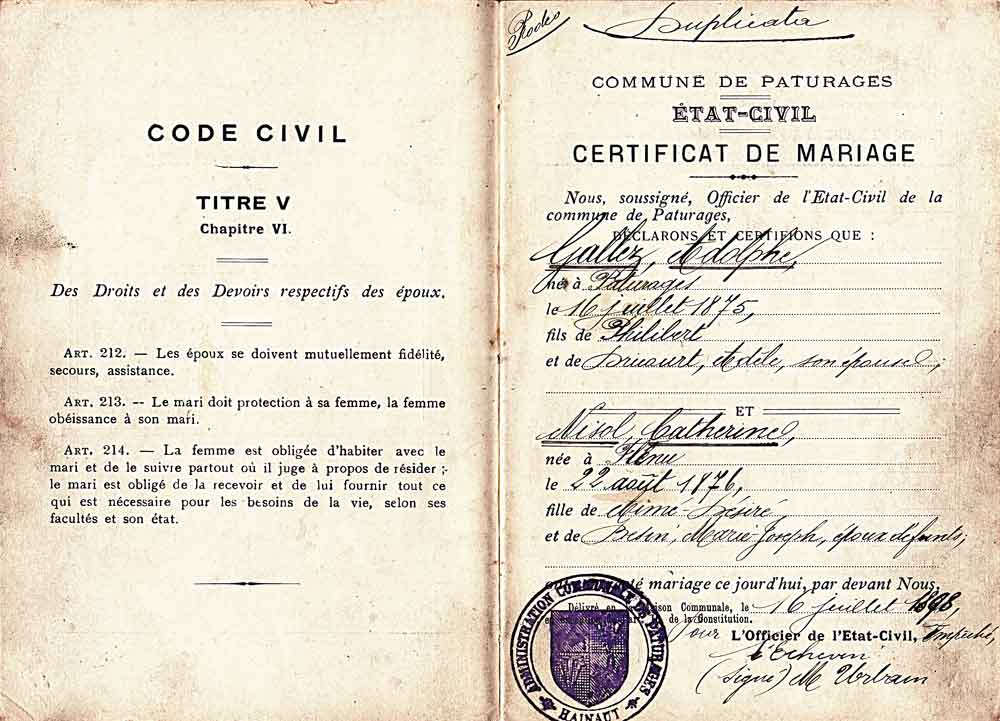 CODE CIVIL
TITRE V
Chapitre VI.
Des Droits et des Devoirs respectifs des époux.
ART. 212. — Les époux se doivent mutuellement fidélité,
secours, assistance.
ART. 213. -- Le mari doit protection à sa femme, la femme
obéissance à son mari.
ART. 214. — La femme est obligée d'habiter avec le
mari et de le suivre partout où il juge à propos de résider ;
le mari est obligé de la recevoir et de lui fournir tout ce
qui est nécessaire pour les besoins de la vie, selon ses
facultés et son état.
Duplicata
COMMUNE DE PATURAGES
ÉTAT-CIVIL
CERTIFICAT DE MARIAGE
Nous, soussigné, Officier de l'Etat-Civil de la
commune de Paturages,
DÉCLARONS ET CERTIFIONS QUE :
Gallez, Adolphe,
né à Paturages
le 16 juillet 1875,
fils de Philibert
et de Adèle, son épouse,
ET
Nisol, Catherine,
née à Hénu
le 22 août 1876,
fille de Aimé-Désiré,
et de Marie-Joseph, époux défunts;
mariage ce jourd'hui, par devant Nous,
Délivré en Maison Communale, le 16 juillet 1898,
de la Constitution.
pour L'Officier de l'Etat-Civil, Empêché,
l'Echevin
(signé) M Urbain
ADMINISTRATION COMMUNALE DE PATURAGES
HAINAUT